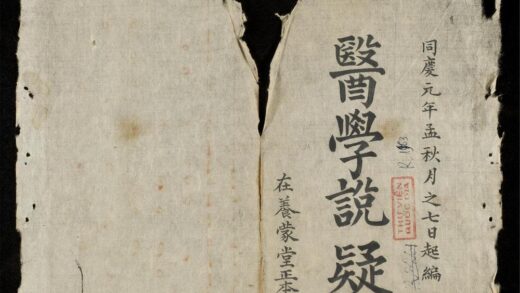 同慶元年孟秋月之七日起編
醫學說疑
在養蒙堂正本
R.1953
THƯ VIỆN
QUỐC GIA